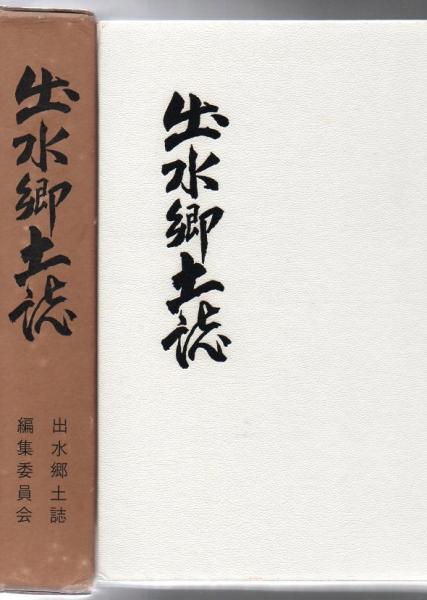 出水郷土誌
出水郷土誌
編集委員会
出水郷土誌